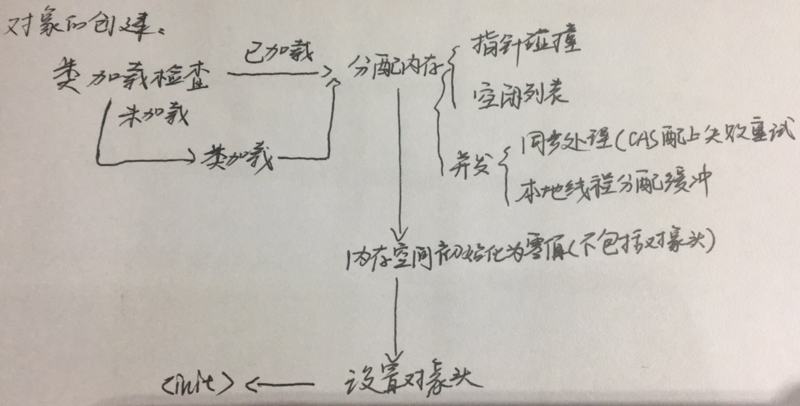 对象的创建:
类加载检查
已加载
分配内存
指针碰撞
空闲列表
未加载
类加载
并发
同步处理(CAS配上失败重试
本地线程分配缓冲
内存空间初始化为零值(不包括对象头)
设置对象头
<init>